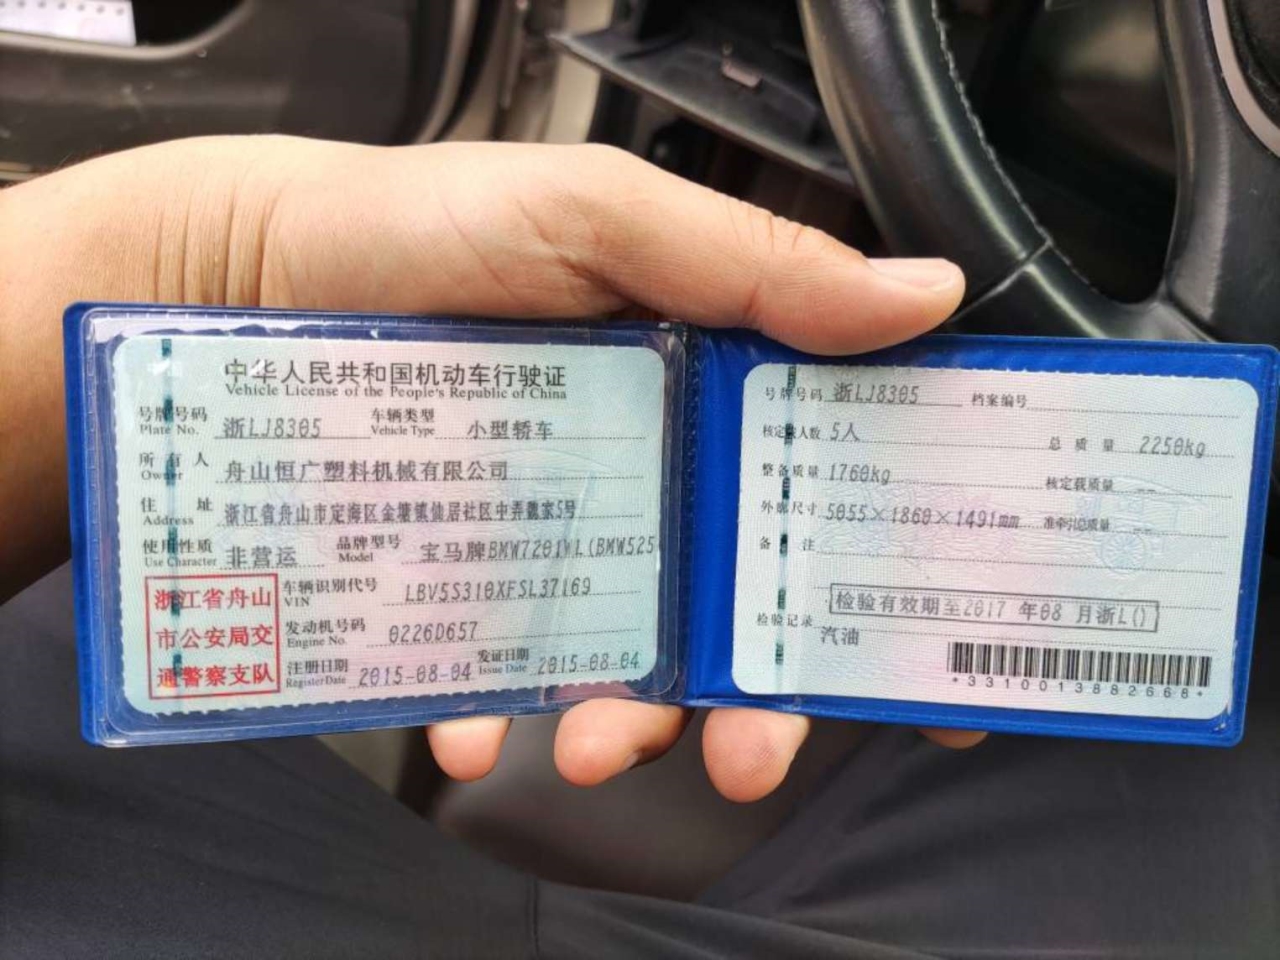 中华人民共和国机动车行驶证
Vehicle License of the People's Republic of China
号牌号码 浙LJ8305 车辆类型 小型轿车
Plate No. Vehicle Type
所有人 舟山恒广塑料机械有限公司
Owner
住址 浙江省舟山市定海区金塘镇仙居社区中弄魏家5号
Address
使用性质 非营运 品牌型号 宝马牌BMW7201WL(BMW525
Use Character Model
浙江省舟山
市公安局交
通警察支队
车辆识别代号 LBV5S310XFSL37169
VIN
发动机号码 0226D657
Engine No.
注册日期 2015-08-04 发证日期 2015-08-04
Register Date Issue Date
号牌号码 浙LJ8305 档案编号
核定载人数 5人 总质量 2250kg
整备质量 1760kg 核定载质量 --
外廓尺寸 5055×1860×1491mm 准牵引总质量 --
备注
检验有效期至2017年08月浙L()
检验记录
汽油
*3310013882668*